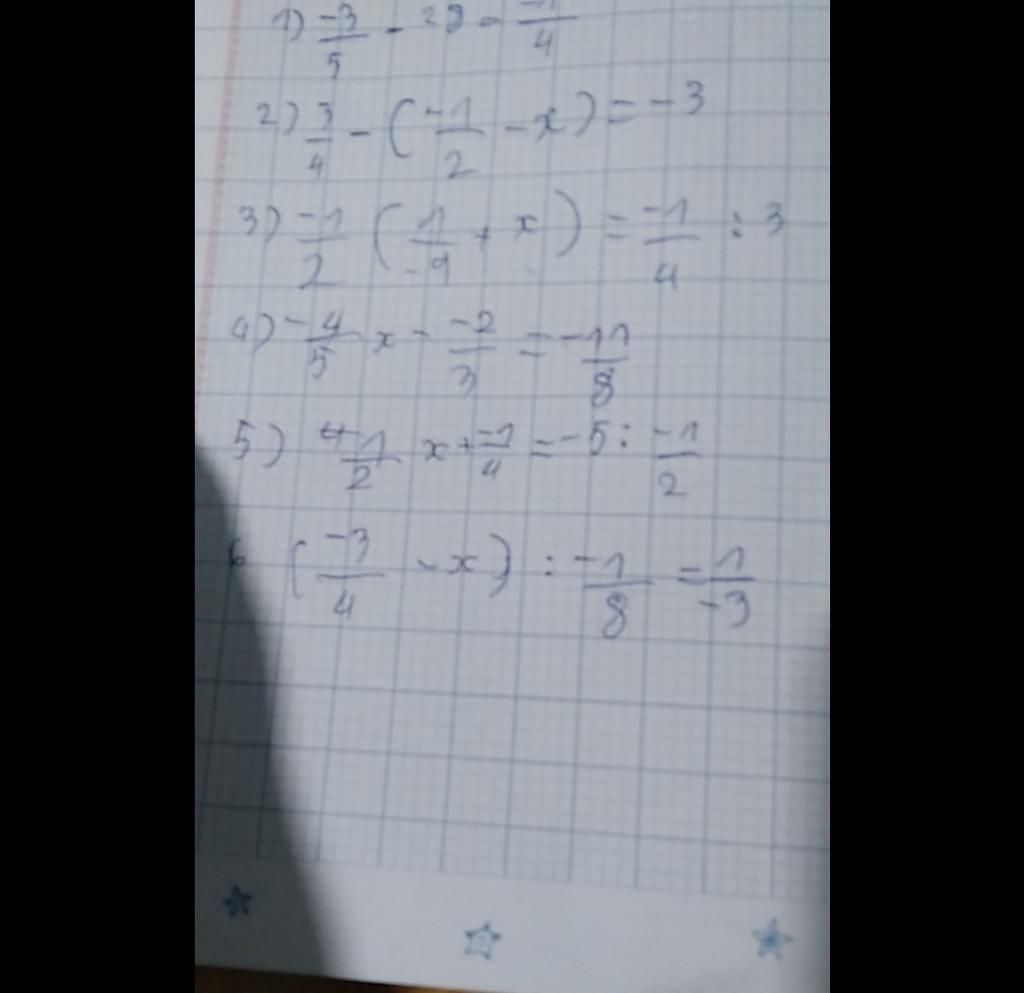 1) -3/5 - 2 = -1/4
2) 3/4 - (-1/2 - x) = -3
3) -1/2 (1/-9 + x) = -1/4 : 3
4) -4/5 x - -2/3 = -11/8
5) -1/2 x + -1/4 = -5 : -1/2
6 (-3/4 - x) : -1/8 = 1/-3